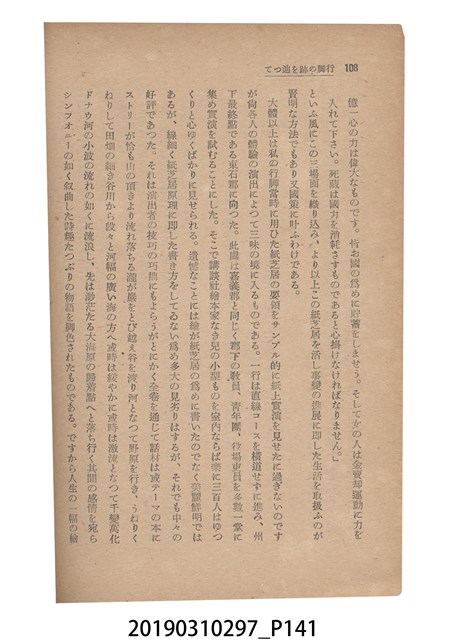 108 行脚の跡を辿つて
億一心の力は偉大なものです。皆お國の爲めに貯蓄をしませう。そして女の人は金賣却運動に力を
入れて下さい。死藏は國力を消耗さすものであると心掛けなければなりません。」
といふ風にこの三場面を織り込み、より以上この紙芝居を活し事變の進展に即した生活を取扱ふのが
賢明な方法でもあり又國策に叶ふわけである。
大體以上は私の行脚當時に用ひた紙芝居の要領をサンプル的に紙上實演を見せたに過ぎないのです
が尚各人の體驗の演出によつて三昧の境に入るものである。一行は直線コースを横道せずに進み、州
下最終點である東石郡に向つた。此處は嘉義郡と同じく郡下の敎員、靑年團、役場吏員を多數一堂に
集め實演を試むることにした。そこで講談社繪本家なき兒の小型ものを室內ならば樂に三百人はゆつ
くりと心ゆくばかりに見せられる。遺憾なことには繪が紙芝居の爲めに書いたのでなく美麗鮮明では
あるが、線細く紙芝居原理に即した書き方をしてゐない爲め多大の見劣りはするが、それでも中々の
好評であつた。それは演出者の技巧の巧拙にもよらうがとにかく全卷を通じて話材は或テーマの本に
ストリーが恰も山の頂きより流れ落ちる瀧が巖をとび越え谷を渡り河となつて野原を行き、うねりく
ねりして田畑の細き谷川から段々と河幅の廣い海の方へ或時は緩やかに或時は激流となつて千變萬化
ドナウ河の小波の流れの如くに流浪し、先は渺茫たる大海原の歸着點へと落ち行く其間の感情を宛ら
シンフオニーの如く叙曲した詩趣たつぷりの物語を脚色されたものである。ですから人生の一幅の繪
20190310297_P141